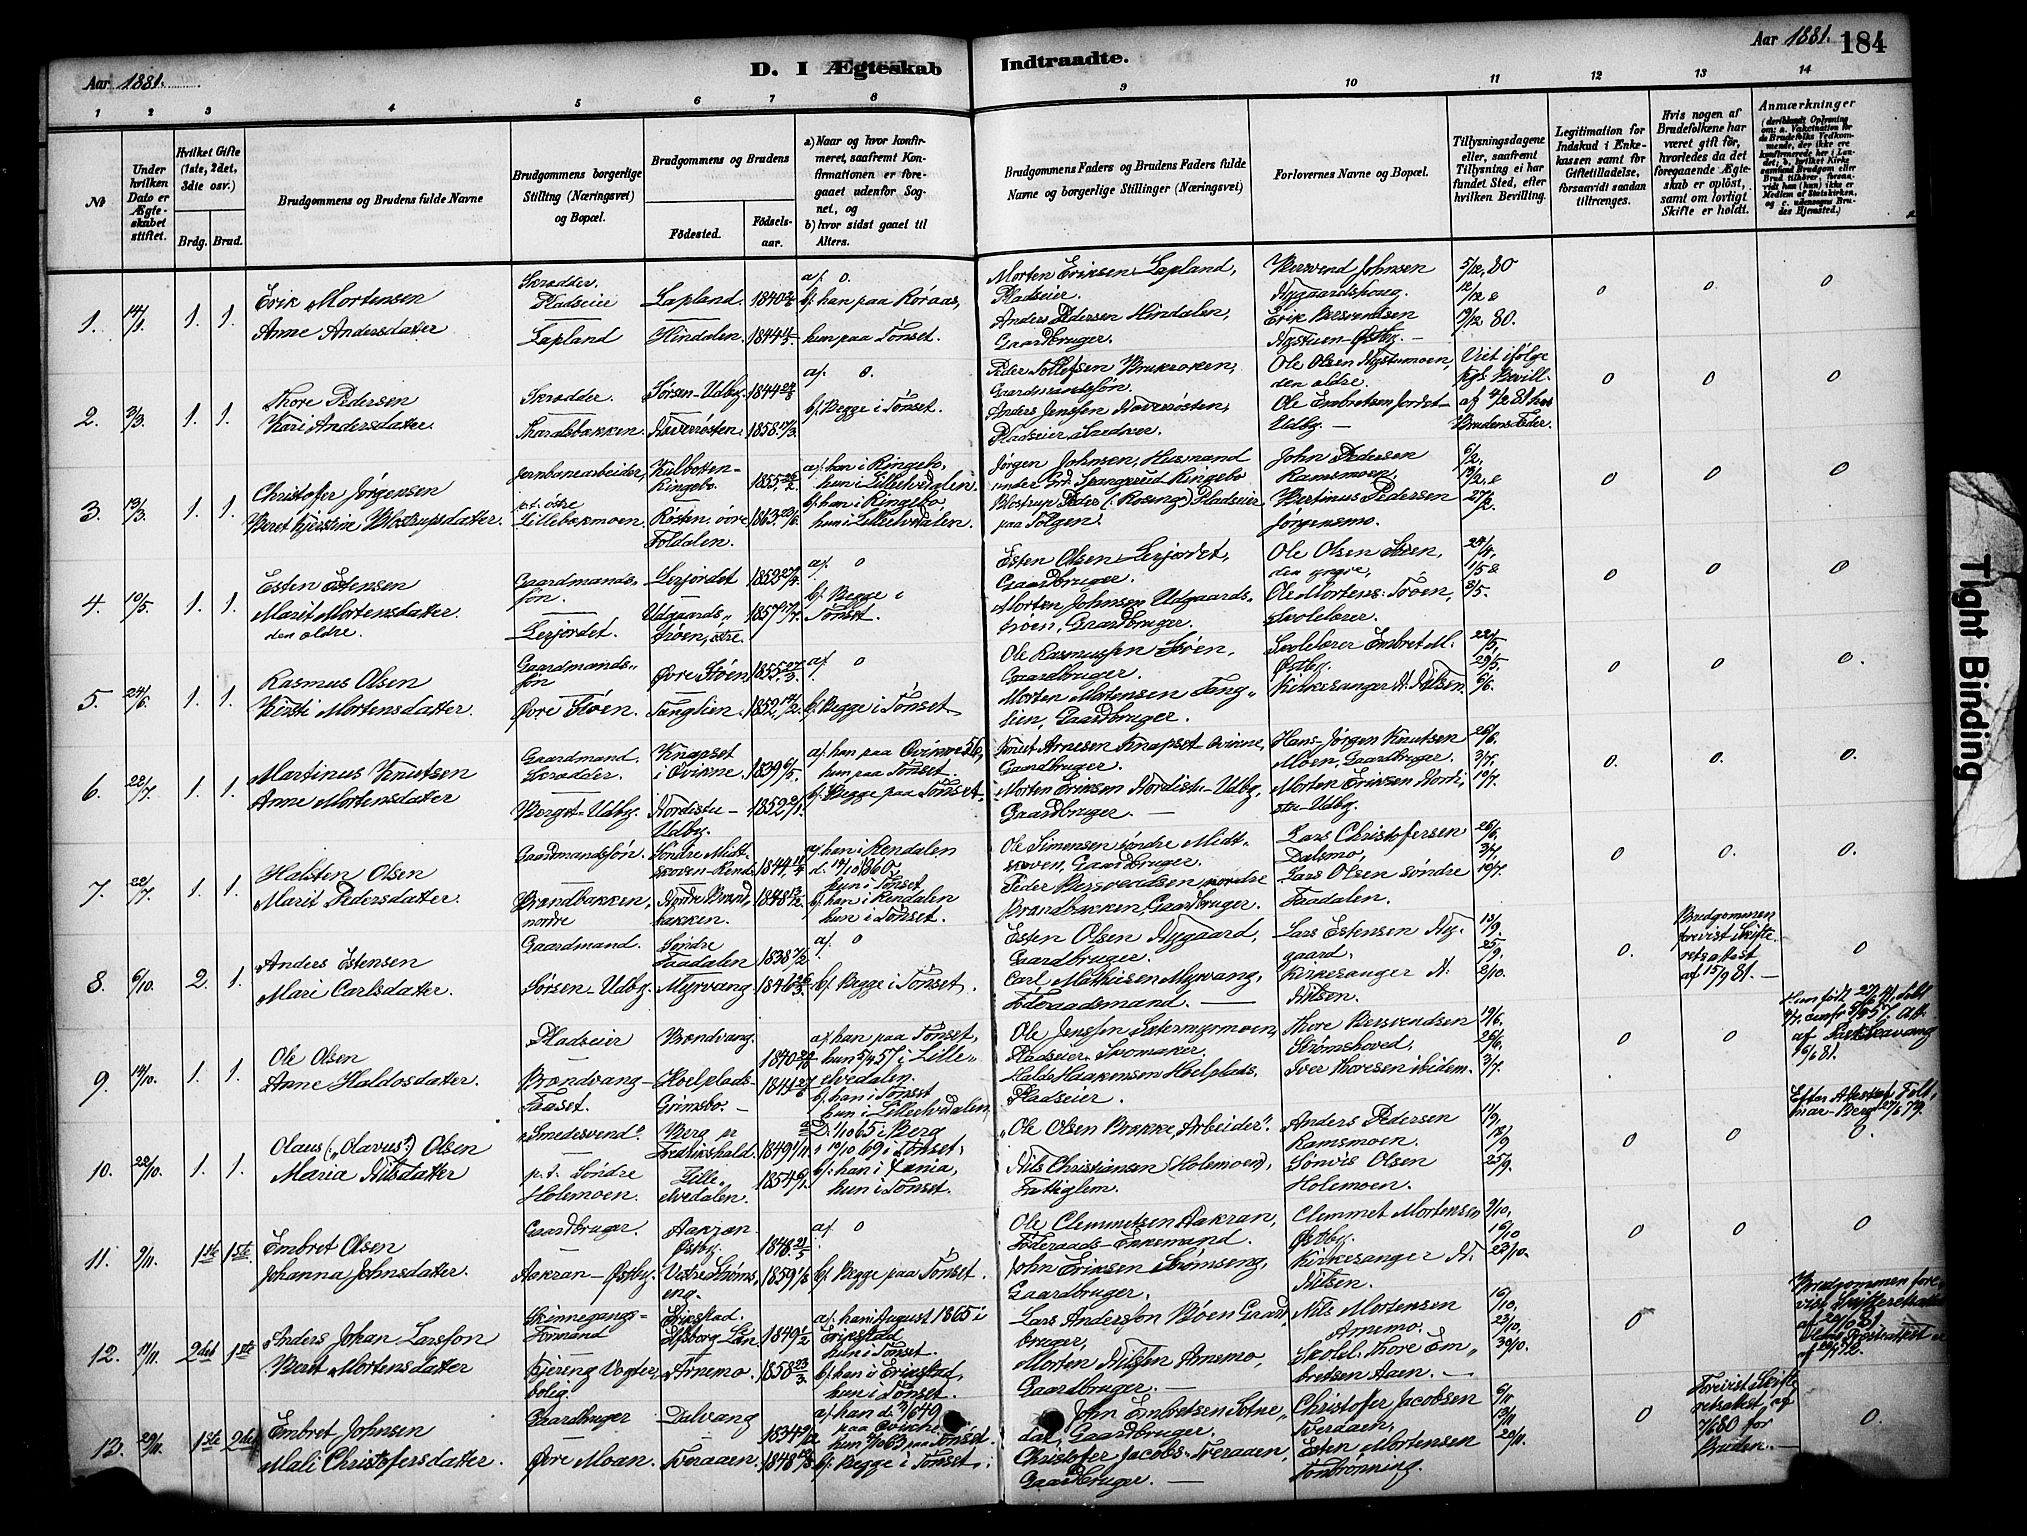 Aar 1881.
D. I Ægteskab
Indtraadte.
Aar 1881. 184
1 2 3 4 5 6 7 8 9 10 11 12 13 14
№
Under hvilken Dato er Ægteskabet stiftet.
Hvilket Gifte (1ste, 2det, 3dte osv.)
Brdg. Brud.
Brudgommens og Brudens fulde Navne
Brudgommens borgerlige Stilling (Næringsvei) og Bopæl.
Brudgommens og Brudens
Födested.
Födsels-aar.
a) Naar og hvor konfirmeret, saafremt Konfirmationen er foregaaet udenfor Sognet, og
b) hvor sidst gaaet til Alters.
Brudgommens Faders og Brudens Faders fulde Navne og borgerlige Stillinger (Næringsvei)
Forlovernes Navne og Bopæl.
Tillysningsdagene eller, saafremt Tillysning ei har fundet Sted, efter hvilken Bevilling.
Legitimation for Indskud i Enkekassen samt för Giftetilladelse, forsaavidt saadan tiltrænges.
Hvis nogen af Brudefolkene har været gift för, hvorledes da det foregaaende Ægteskab er oplöst, samt om lovligt Skifte er holdt.
Anmærkninger
1. 14/1. 1. 1.
Erik Mortensen
Anne Andersdatter
Skrædder.
Pladseier
Lapland
Lapland. 1840
Hindalen. 1844
a/ o.
b/ han paa Röraas,
hun paa Tönset.
Morten Eriksen Lapland,
Pladseier.
Anders Pedersen Hindalen,
Gaardbruger.
Bersvend Johnsen
Nygaardshoug.
Erik Bersvendsen
Nystuen-Østby.
5/12, 80
12/12
19/12 80.
o o o
2. 3/3. 1. 1.
Thore Pedersen
Kari Andersdatter.
Skrædder.
Skardsbakken.
Sörsen-Udby. 1844
Haverösten. 1858 17/3.
a/ o.
b/ Begge i Tönset.
Gaardmandssön.
Anders Jensen Haverösten,
Pladseier, Snedker.
Ole Olsen Nystumoen,
den ældre.
Ole Embretsen Jordet-
Udby.
Viet ifölge
kgl. Bevill.
Brudens Fader.
0 0 0
3. 13/3. 1. 1.
Christofer Jörgensen
Beret Kjerstine Blostrupsdatter.
Jernbanearbeider,
p.t. østre
Lillebækmoen.
Ringebo. 1855
Røsten. övre 1863
Foldalen.
a/ han i Ringebo,
hun i Lilleelvedalen.
b/ han i Ringebo
hun i Lilleelvedalen.
Jørgen Johnsen, Husmand
under Grd. Spangerud Ringebo
Blostrup Peder (Rosing) Pladseier
paa Tolgen.
John Pedersen
Ramsmoen,
Bertinus Pedersen
Jörgensmo.
6/2,
13/2,
27/2.
0 0 0
4. 10/5. 1. 1.
Esten Estensen
Marit Mortensdatter
den ældre.
Gaardmands-
sön
Lerjordet.
Lerjordet 1852
Udgaards- 1857
trøen, østre.
a/ o
b/ Begge i
Tönset.
Esten Olsen Lerjordet,
Gaardbruger.
Morten Johnsen Udgaards-
trøen, Gaardbruger.
Ole Olsen Støen,
den yngre,
Ole Mortens: Trøen,
Skolelærer.
24/4,
1/5
8/5.
0 0 0
5. 24/6. 1. 1.
Rasmus Olsen
Kirsti Mortensdatter.
Gaardmands-
sön
Øvre Støen.
Øvre Støen, 1855
Tanglien. 1852
a/ o
b/ Begge i Tönset.
Ole Rasmussen Støen,
Gaardbruger.
Morten Mortensen Tang-
lien, Gaardbruger.
Skolelærer Embret M.
Østby.
Kirkesanger N. Nilsen
22/5,
29/5.
6/6.
0 0 0.
6. 22/7. 1. 1.
Martinus Knutsen
Anne Mortensdatter
Gaardmand.
Skrædder.
Berget-Udby.
Knapset
i Qvikne. 1839
Nordistu- 1852
Udby.
a/ han paa Qvikne 56,
hun paa Tönset.
b/ Begge paa Tönset.
Knut Arnesen Knapset-Qvikne,
Gaardbruger.
Morten Eriksen Nordistu-Udby,
Gaardbruger.
Hans-Jørgen Knutsen
Moen, Gaardbruger.
Morten Eriksen Nordi-
stu-Udby.
26/6.
3/7.
10/7.
0. 0. 0.
7. 22/7. 1. 1.
Halsten Olsen
Marit Pedersdatter.
Gaardmandssön.
Brandbakken,
nordre
Søndre Midt-
skoven-Rend. 1844
Nordre Brand- 1848
bakken.
a/ han i Rendalen
d. 14/10 1860,
hun i Tönset
b/ han i Rendalen
hun i Tönset.
Ole Simensen søndre Midt-
skoven, Gaardbruger.
Peder Bersvendsen nordre
Brandbakken, Gaardbruger.
Lars Christofersen
Dalsmo,
Lars Olsen søndre
Faadalen.
26/6
3/7
10/7.
0 0. 0.
8. 6/10. 2. 1.
Anders Estensen
Mari Carlsdatter.
Gaardmand.
Sørsen-Udby.
Søndre
Faadalen 1838
Myrvang 1846
a/ o
b/ Begge i Tönset.
Esten Olsen Nygaard,
Gaardbruger.
Carl Mathisen Myrvang,
Føderaadsmand.
Lars Estensen Ny-
gaard,
Kirkesanger N.
Nilsen.
25/9.
2/10.
0.
Brudgommen
forevist Skifte-
retsattest
af 15/9 81.
0
9. 14/10. 1. 1.
Ole Olsen
Anne Haldosdatter.
Pladseier
Brændvang-
Faaset.
Brændvang. 1840
Hoelplads- 1841
Grimsbo.
a/ han paa Tönset,
hun 5/4 57 i Lille-
elvedalen.
b/ han i Tönset
hun i Lilleelvedalen.
Ole Jenssen Sætermyrmoen,
Pladseier, Skomaker.
Haldo Haakensen Hoelplads.
Pladseier.
Thore Bersvendsen
Strømshoved,
Iver Thoresen ibidem.
19/6.
26/6.
3/7.
0 0
10. 28/10. 1. 1.
Olaus ("Olavus"?) Olsen
Maria Nilsdatter
"Smedesvend".
p.t. Søndre
Holemoen.
Berg pr
Fredrikshald. 1849
Lille- 1854
elvedalen.
D. 1/10 65 i Berg
i 10/10 69 i Tönset.
b/ han i Vania,
hun i Tönset.
"Ole Olsen Brække, Arbeider".
Nils Christiansen (Holemoen),
Fattiglem.
Anders Pedersen
Ramsmoen.
Sønvis Olsen
Holemoen.
11/9.
18/9
25/9.
0 0
0.
11. 9/11. 1ste 1ste.
Embret Olsen
Johanna Johnsdatter.
Gaardbruger
Aakran-Østby.
Aakran
Østby. 1848
Vestre Strøms- 1859
eng.
a/ o
b/ Begge paa Tönset.
Ole Clemmetsen Aakran,
Føderaads-Enkemand.
John Eriksen Strømseng,
Gaardbruger,
Clemmet Mortensen
Østby.
Kirkesanger N.
Nilsen.
9/10,
16/10
23/10.
0 0 0
12. 11/11. 2det 1ste
Anders Johan Larsson
Beret Mortensdatter
Skinnegangs-
Formand
Kjering Vogter-
bolig.
Erikstad.
Elfsborg Län. 1849
Arnemo. 1858
a/ han i August 1865 i
Erikstad
hun i Tönset.
b/ han i Erikstad,
hun i Tönset.
Lars Anderson Bøen Gaard-
bruger,
Morten Nilsen Arnemo,
Gaardbruger.
Nils Mortensen
Arnemo.
Skolel. Thore Em-
bretsen Aaen.
16/10,
23/10,
30/10.
0
Brudgommen fore-
13. 29/11. 1ste 2det
Embret Johnsen
Mali Christofersdatter.
Gaardbruger
Øvre Moan.
Dalvang 1834
Tveraaen. 1848
paa Qvikne
b/ Begge i Tönset.
John Embretsen Sotne-
dal, Gaardbruger.
Christofer Jacobs. Tveraaen,
Gaardbruger.
Christofer Jacobsen
Tveraaen,
Esten Mortensen
Tøntrønning.
6/11
13/11
20/11.
0
Forevist Skifte-
retsattest, af
7/6 80 for
Bruden.
0.
Tight Binding